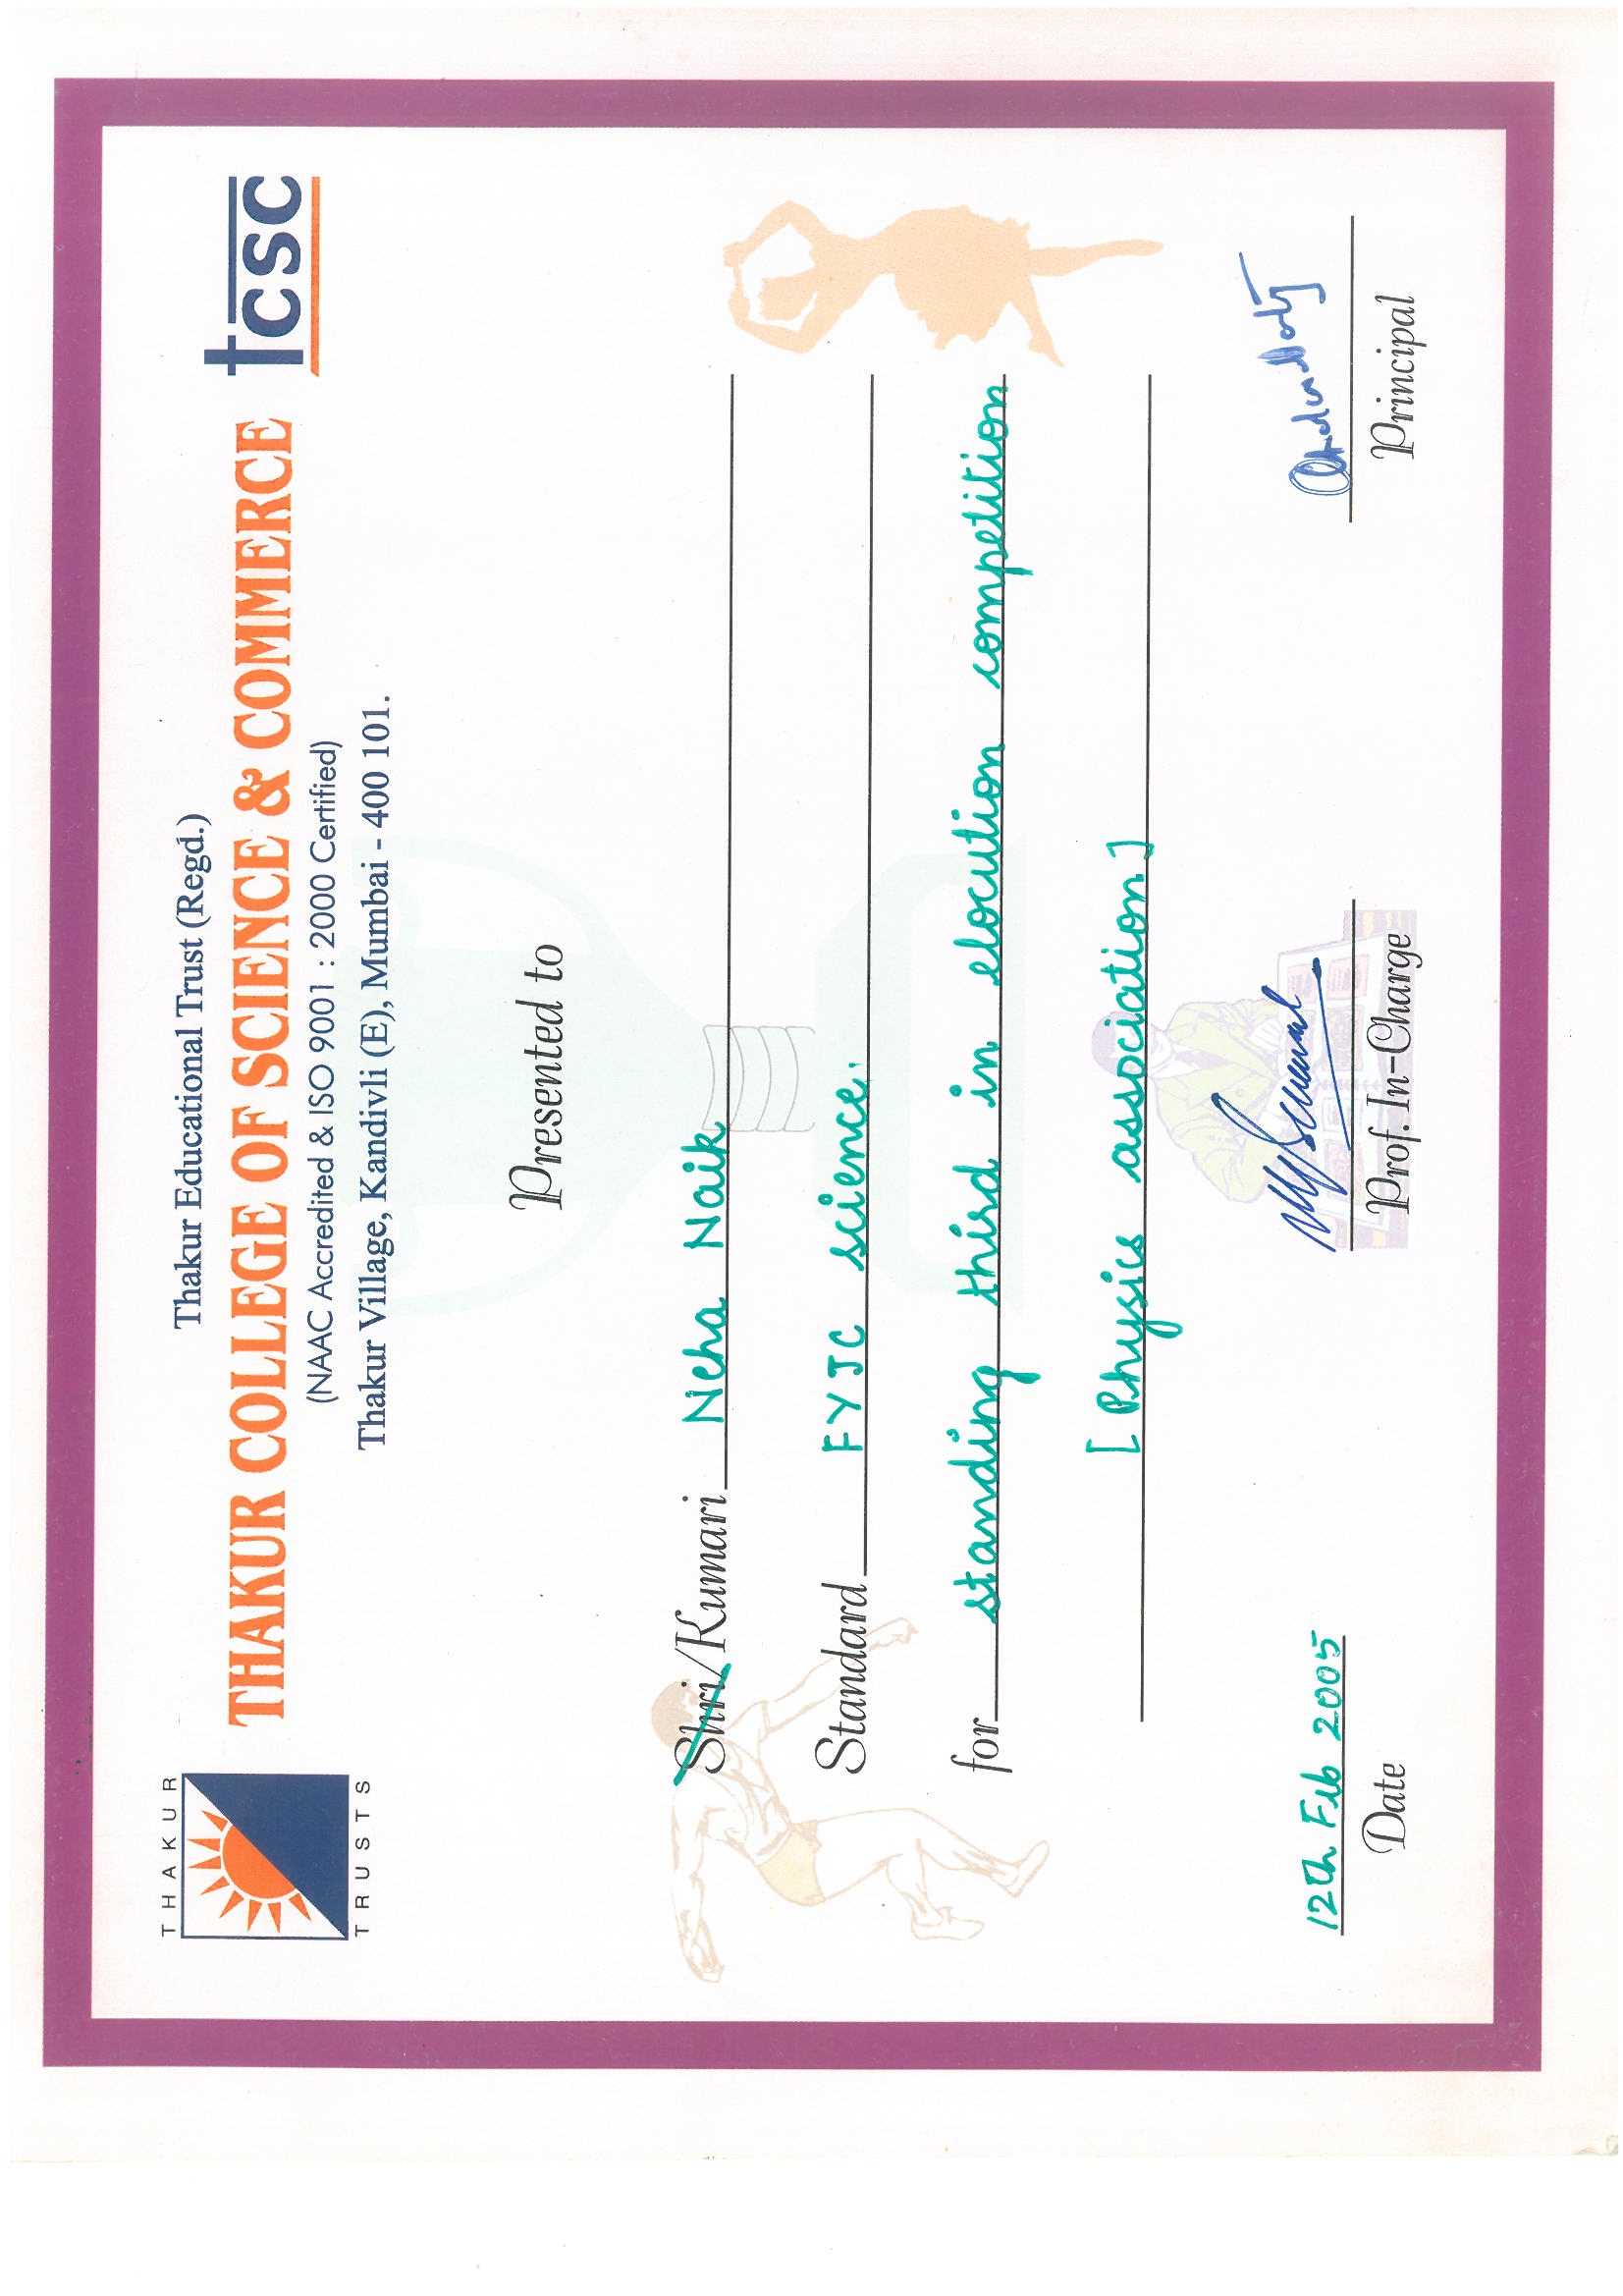 THAKUR
TRUSTS
Thakur Educational Trust (Regd.)
THAKUR COLLEGE OF SCIENCE & COMMERCE
(NAAC Accredited & ISO 9001 : 2000 Certified)
Thakur Village, Kandivli (E), Mumbai - 400 101.
tcsc
Presented to
Shri/Kumari Neha Naik
Standard FYJC science.
for standing third in elocution competition
[ Physics association ]
12th Feb 2005
Date
Prof. In-Charge
Principal